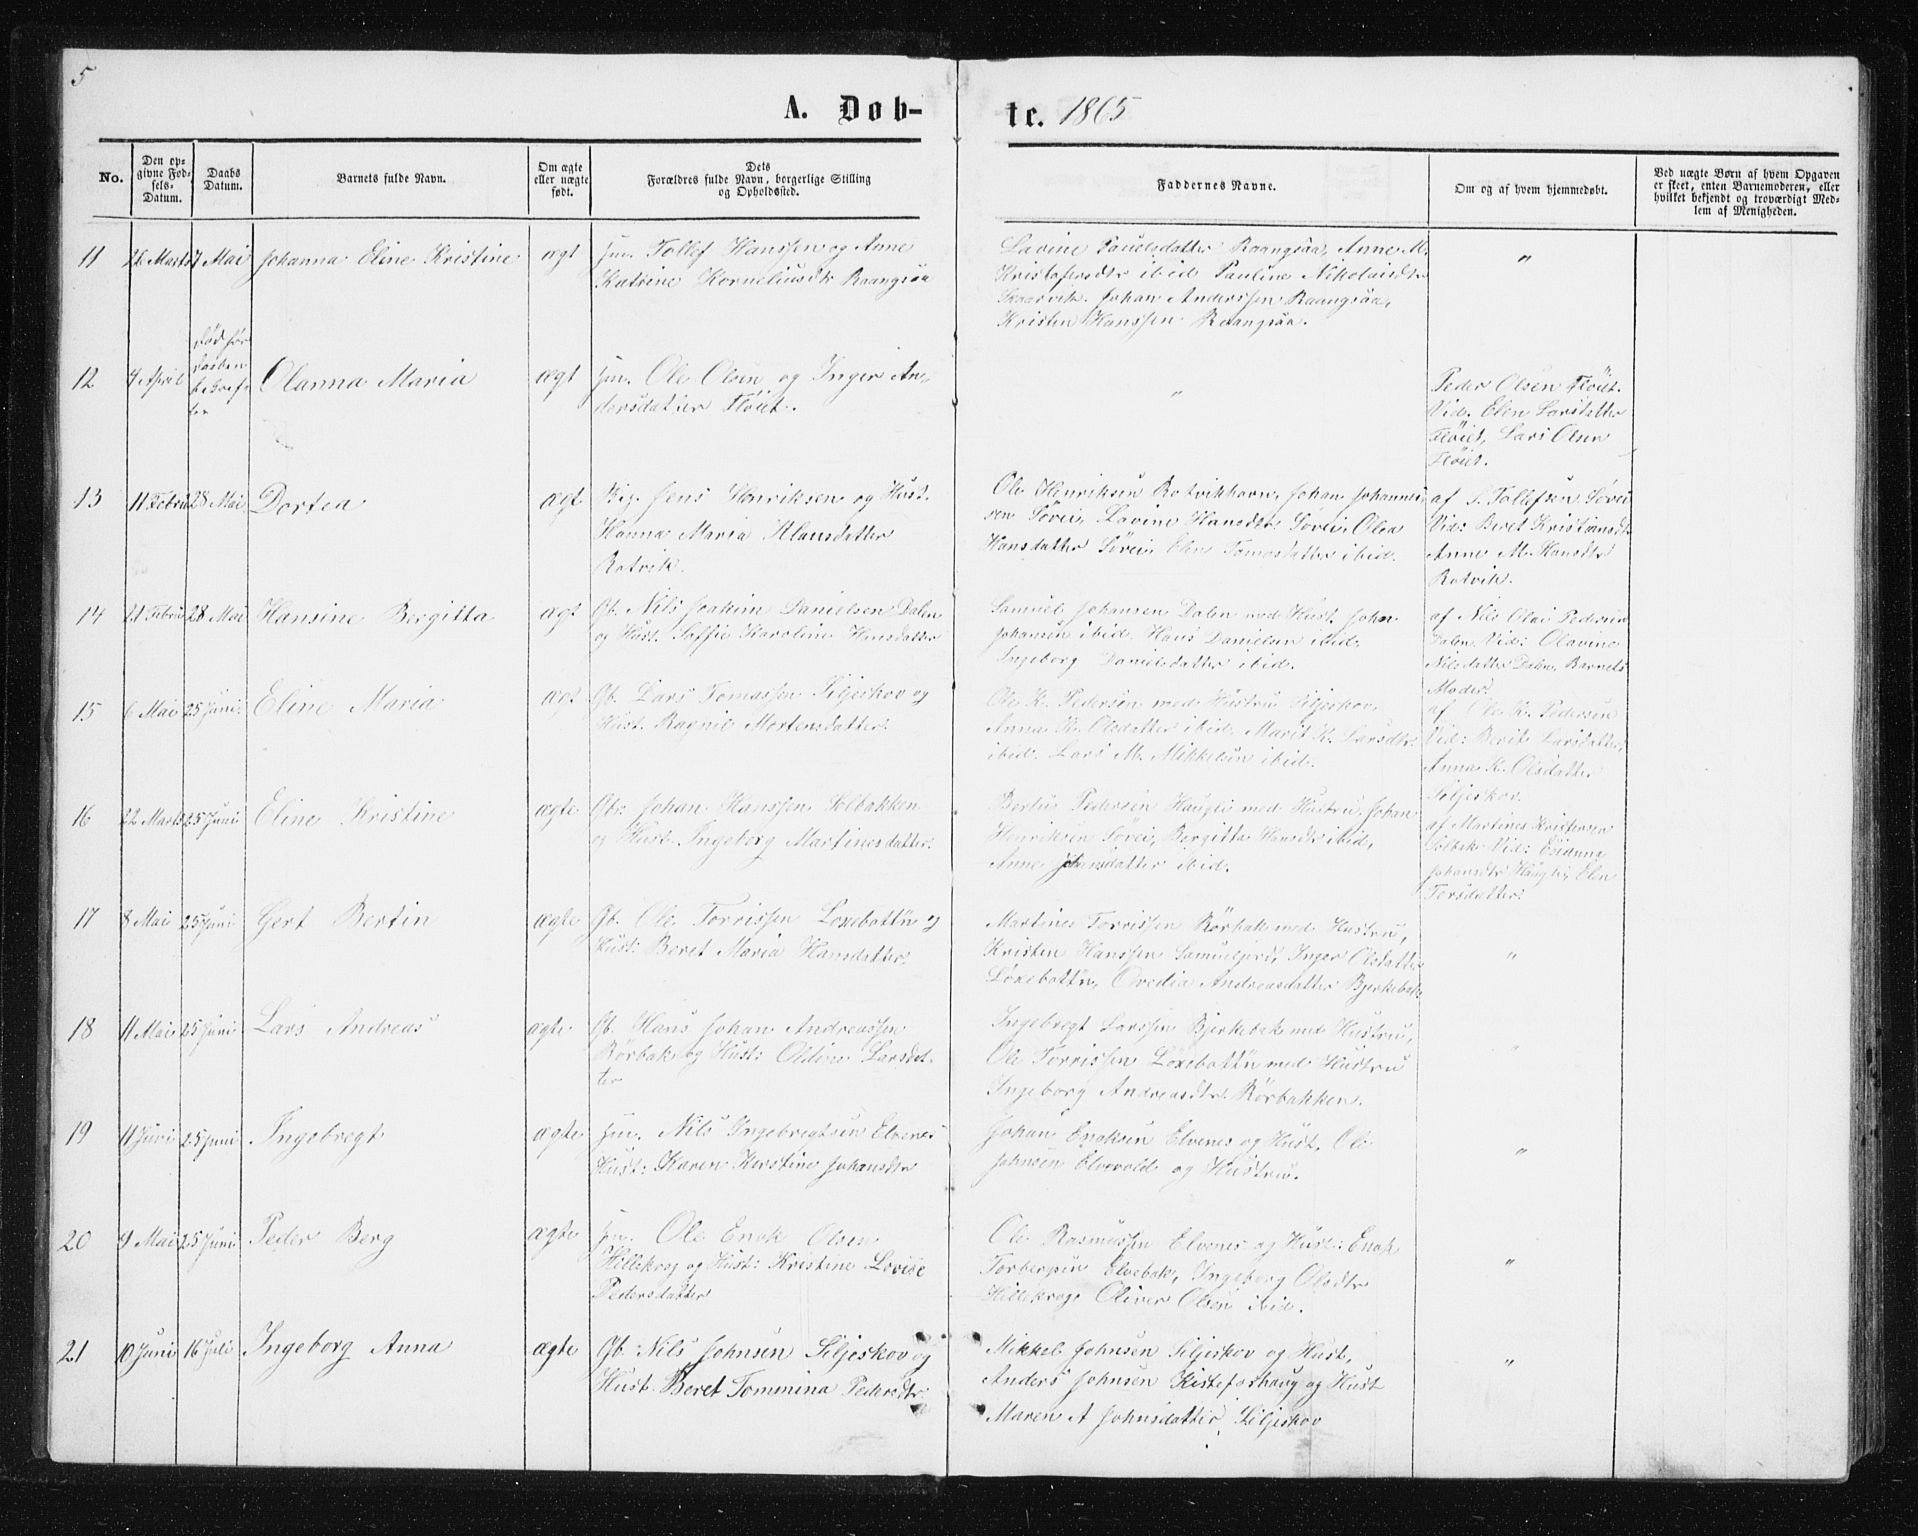 5
A. Døb-
te. 1865
No.
Den op-
givne Fød-
sels-
Datum.
Daabs
Datum.
Barnets fulde Navn.
Om ægte
eller uægte
født.
Dets
Forældres fulde Navn, borgerlige Stilling
og Opholdssted.
Faddernes Navne.
Om og af hvem hjemmedøbt.
Ved uægte Børn af hvem Opgaven
er skeet, enten Barnemoderen, eller
hvilket bekjendt og troværdigt Med-
lem af Menigheden.
11 26 Marts 7 Mai Johanna Eline Kristine ægt
Jnn. Tollef Hanssen og Anne
Katrine Korneliusdtr Raangsaa
Lavine Paulsdatter Raangsaa, Anne M.
Kristofersdtr ibid Pauline Nikolaisdtr
Skaarvik. Johan Anderssen Raangsaa,
Kristen Hanssen Raangsaa.
"
12 4 April
Død før
Daaben
Olanna Maria ægt
Jnn. Ole Olsen og Inger An-
dersdatter Fløiet.
"
Peder Olsen Fløiet.
Vid. Elen Larsdatter
Fløiet, Lars Olsen
Fløiet.
13 11 Febru 28 Mai Dortea ægt
Jens Henriksen og Hust.
Hanna Maria Klausdatter
Rotvik.
Ole Henriksen Rotvikhavn, Johan Johannes
sen Sørei, Lavine Hansdtr Sørei, Olea
Hansdatter Sørei, Elen Tomasdatter ibid.
af S. Tollefsen Sørei
Vid: Beret Kristiansdtr
Anne M. Hansdtr
Rotvik.
14 21 Febru 28 Mai Hansine Bergitta ægt
Gb. Nils Joakim Danielsen Dalen
og Hust. Soffie Karoline Hansdatter
Samuel Johansen Dalen med Hust. John
Johansen ibid. Hans Danielsen ibid.
Ingeborg Danielsdatter ibid.
af Nils Olai Pedersen
Dalen Vid: Olavine
Nilsdatter Dalen, Barnets
Moder.
15 6 Mai 25 Juni Eline Maria ægt
Gb. Lars Tomassen Siljeskov og
Hust. Ragnil Mortensdatter.
Ole K. Pedersen med Hustru Siljeskov,
Anna K. Olsdatter ibid. Marit K. Larsdtr
ibid. Lars M. Mikkelsen ibid.
af Ole K. Pedersen
Vid: Berit Larsdatter,
Anna K. Olsdatter
Siljeskov.
16 22 Marts 25 Juni Eline Kristine ægte
Gbr. Johan Hanssen Solbakken
og Hust. Ingeborg Martinesdatter.
Bertus Pedersen Haugli med Hustru, Johan
Henriksen Sørei, Bergitta Hansdtr ibid,
Anne Johnsdatter ibid.
af Martines Kristensen
Solbak Vid:
Johansdtr Haugli, Elen
Torsdatter.
17 8 Mai 25 Juni Gert Bertin ægte
Gb. Ole Torrissen Loxebottn og
Hust: Beret Maria Hansdatter.
Martines Torrissen Rørbak med Hustru,
Kristen Hanssen Samueljord, Inger Olsdatter
Løxebottn, Ovedia Andreasdatter Bjerkebak.
"
18 11 Mai 25 Juni Lars Andreas ægte
Gb. Hans Johan Andreassen
Rørbak og Hust: Oline Larsdat-
ter
Ingebregt Larssen Bjerkebak med Hustru,
Ole Torrissen Løxebottn med Hustru
Ingeborg Andreasdtr. Rørbakken.
"
19 11 Juni 25 Juni Ingebregt ægte
Jnn. Nils Ingebregtsen Elvenes
Hust: Karen Kerstine Johansdtr
Johan Enoksen Elvenes og Hust, Ole
Johnsen Elvevold og Hustru.
"
20 9 Mai 25 Juni Peder Berg ægte
Jnn. Ole Enok Olsen
Hillekrog og Hust: Kristine Lovise
Pedersdatter
Ole Rasmussen Elvenes og Hust: Enok
Torbersen Elvebak, Ingeborg Olsdtr
Hillekrog, Oliver Olsen ibid.
"
21 10 Juni 16 Juli Ingeborg Anna ægte
Gb. Nils Johnsen Siljeskov og
Hust. Beret Tommina Pedersdtr.
Mikkel Johnsen Siljeskov og Hust,
Anders Johnsen Kistefoshaug og Hust
Maren A Johnsdatter, Siljeskov
"